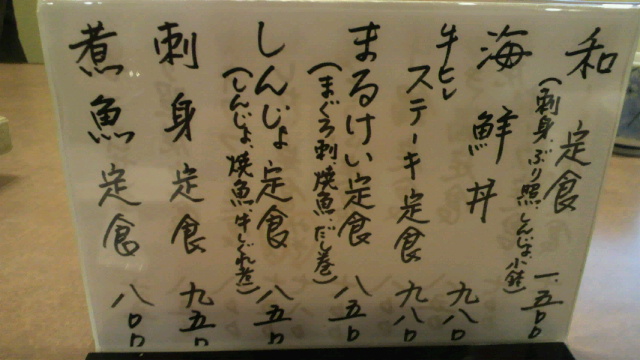 和定食
(刺身、ぶり照、しんじょ、小鉢) 一、五〇〇
海鮮丼 九八〇
牛ヒレステーキ定食 九八〇
まるけい定食 八五〇
(まぐろ刺、焼魚、だし巻)
しんじょ定食 八五〇
(しんじょ、焼魚、牛しぐれ煮)
刺身定食 九五〇
煮魚定食 八〇〇